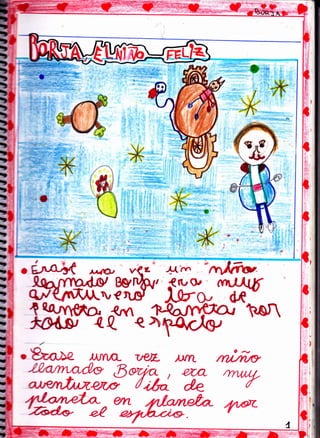 BORJA
BORJA, EL NIÑO FELIZ
Érase una vez un niño
llamado Borja, era muy
aventurero iba de
planeta en planeta por
todo el espacio
Érase una vez un niño
llamado Borja, era muy
aventurero iba de
planeta en planeta por
todo el espacio.
1